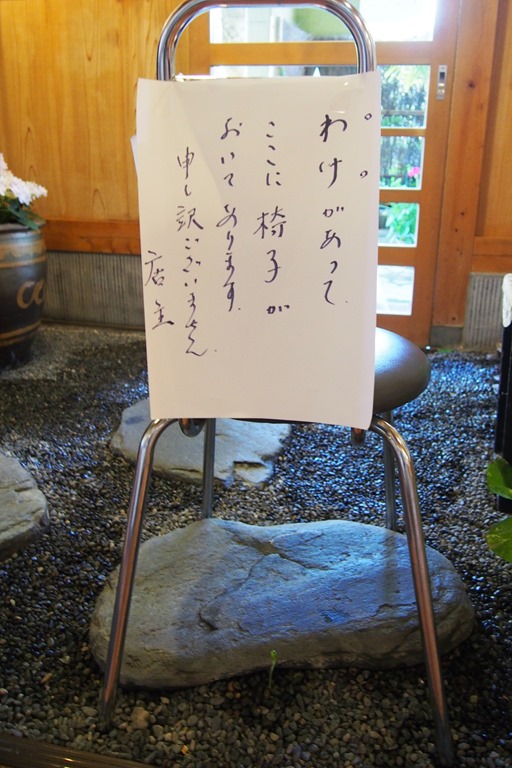 わけがあって、
ここに椅子が
おいてあります。
申し訳ございません。
店主